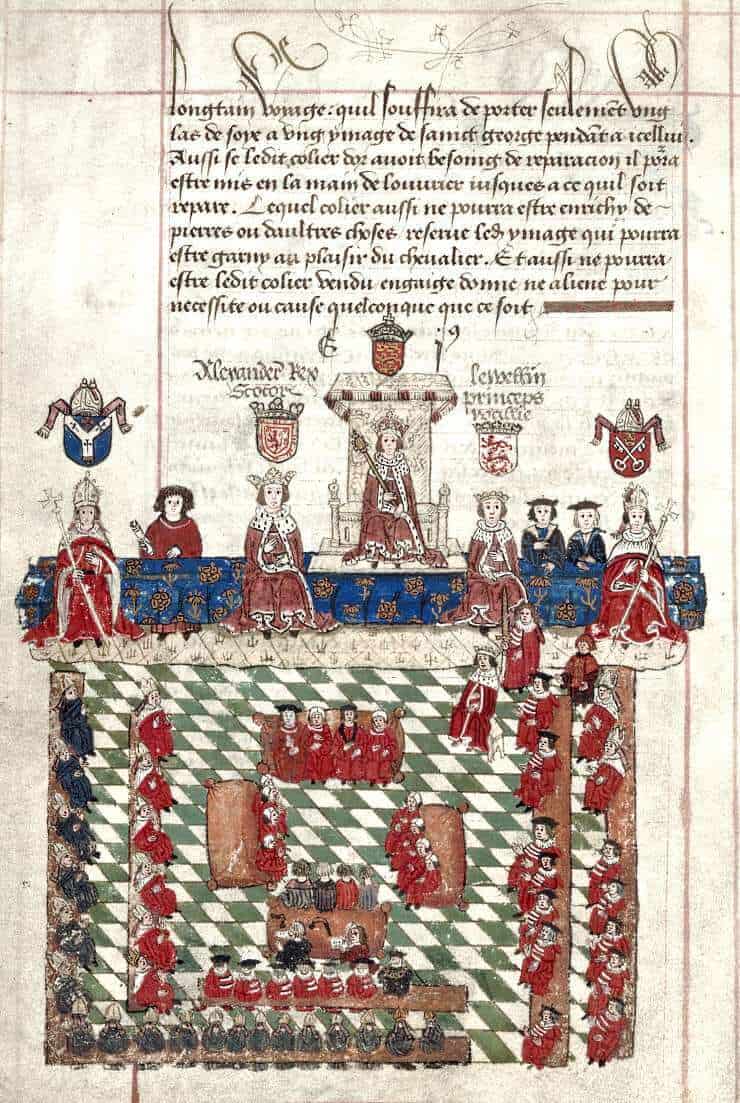 longtain voyage : quil souffira de porter seulemēt vng
las de soye a vng ymage de sainct george pendāt a icellui .
Aussi se ledit colier dor auoit besoing de reparacion il porra
estre mis en la main de louurier iusques a ce quil soit
repare . Lequel colier aussi ne pourra estre enrichy de
pierres ou daultres choses reserue led ymage qui pourra
estre garny au plaisir du cheualier . Et aussi ne pourra
estre ledit colier vendu engaige donne ne aliene pour
necessite ou cause quelconque que ce soit
E
Alexander Rex
Scotore
lewellin
princeps